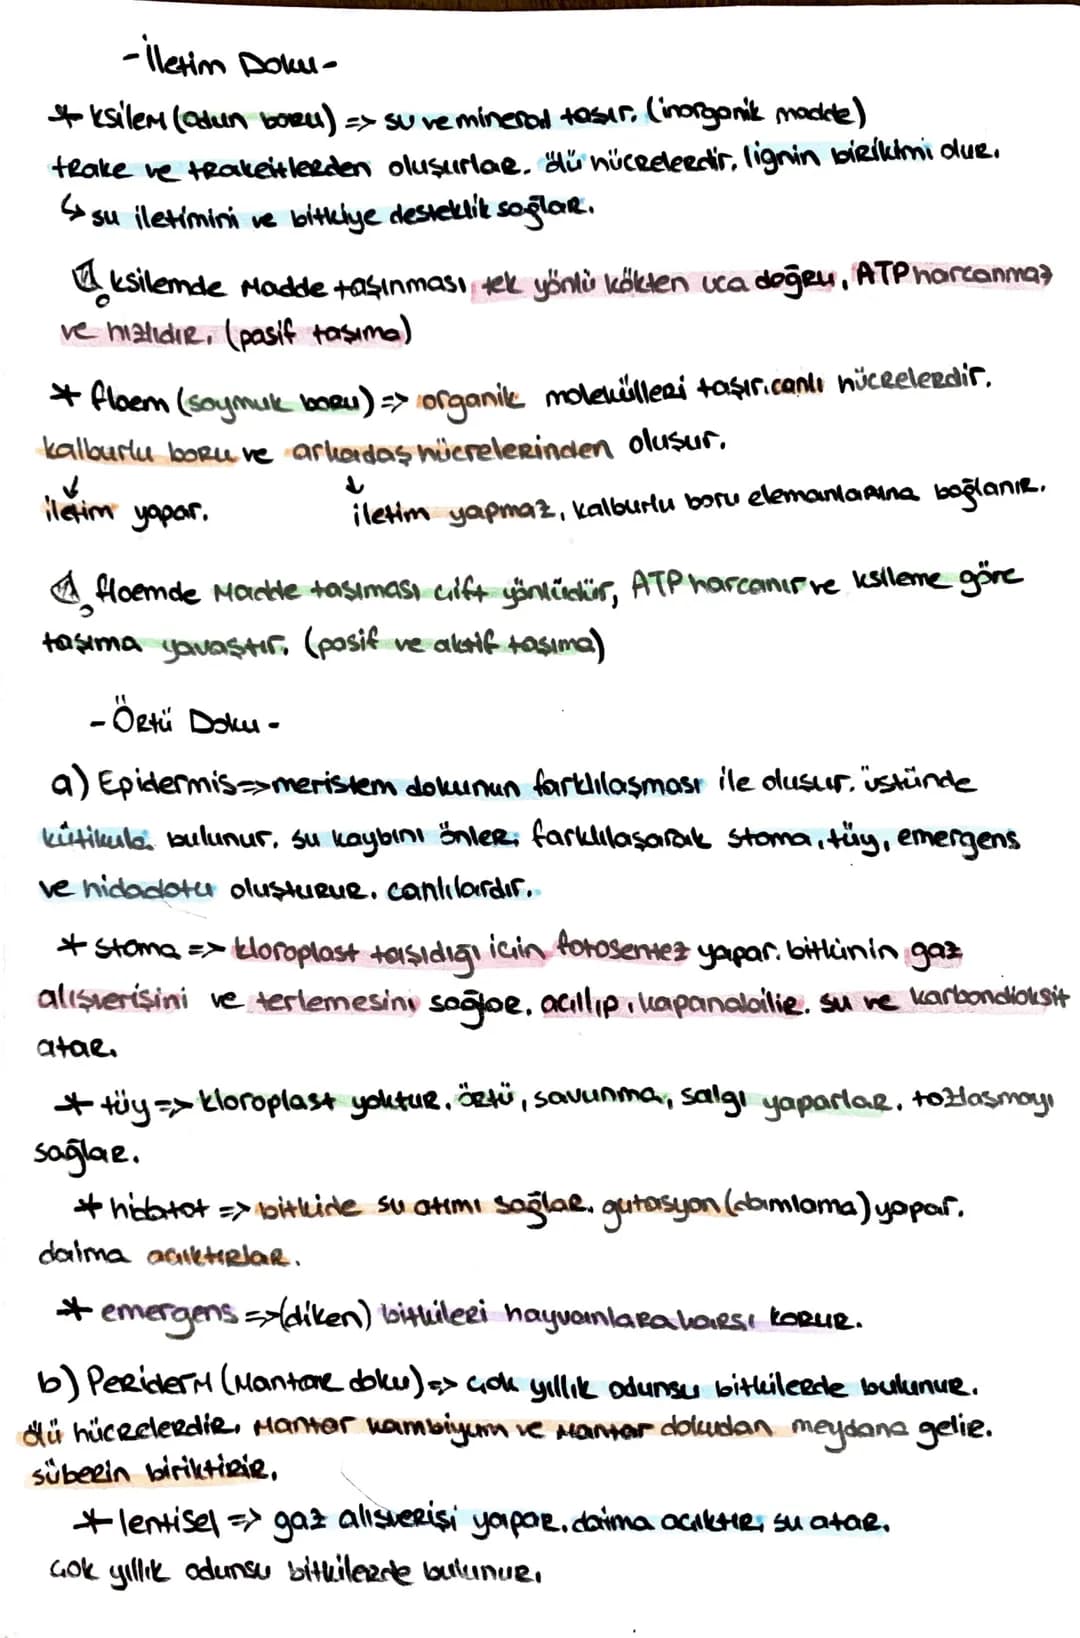 -İletim Doku-
* ksilem (odun boru) => su ve mineral taşır. (inorganik madde)
trake ve trakeitlerden oluşurlar. ölü hücrelerdir. lignin birikimi olur.
↳ su iletimini ve bitkiye desteklik sağlar.
ksilemde madde taşınması, tek yönlü kökten uca doğru, ATP harcanmaz
ve hızlıdır. (pasif taşıma)
* floem (soymuk boru) => organik molekülleri taşır. canlı hücrelerdir.
kalburlu boru ve arkadaş hücrelerinden oluşur.
↓ ↓
iletim yapar. iletim yapmaz, kalburlu boru elemanlarına bağlanır.
floemde madde taşıması çift yönlüdür, ATP harcanır ve ksileme göre
taşıma yavaştır. (pasif ve aktif taşıma)
- Örtü Doku -
a) Epidermis => meristem dokunun farklılaşması ile oluşur. üstünde
kütikula bulunur. su kaybını önler. farklılaşarak stoma, tüy, emergens
ve hidadotu oluşturur. canlılardır.
* stoma => kloroplast taşıdığı için fotosentez yapar. bitkinin gaz
alışverişini ve terlemesini sağlar. açılıp, kapanabilir. su ve karbondioksit
atar.
* tüy => kloroplast yoktur. örtü, savunma, salgı yaparlar. tozlaşmayı
sağlar.
* hidatot => bitkide su atımı sağlar. gutasyon (damlama) yapar.
daima açıktırlar.
* emergens => (diken) bitkileri hayvanlara karşı korur.
b) Periderm (mantar doku) => çok yıllık odunsu bitkilerde bulunur.
ölü hücrelerdir. mantar kambiyum ve mantar dokudan meydana gelir.
süberin biriktirir.
* lentisel => gaz alışverişi yapar. daima açıktır. su atar.
çok yıllık odunsu bitkilerde bulunur.